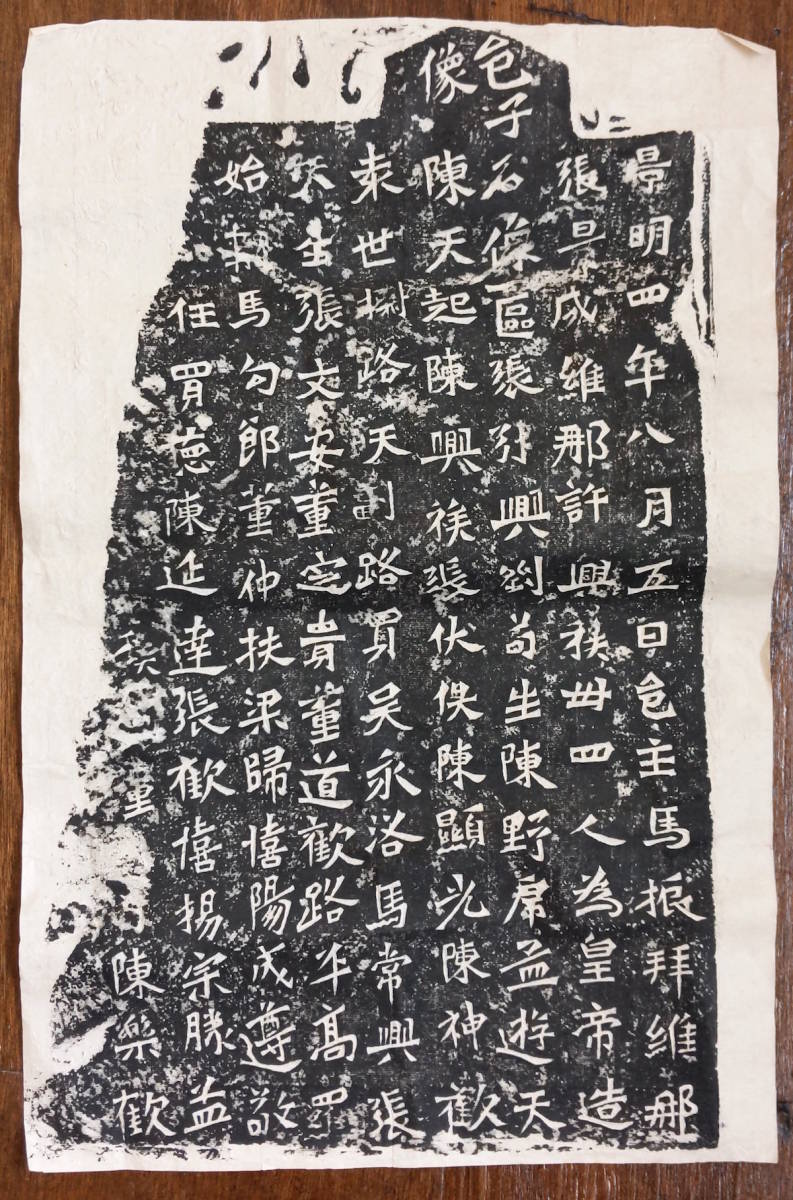 景明四年八月五日邑主馬振拜維那
張子成維那許興族卅四人為皇帝造
邑子石像一區張引興劉苟生陳野虎孟遊天
像陳天起陳興族張伏保陳顯光陳神歡
袁世㭭路天副路買吳永洛馬常興張
天生張文安董定貴董道歡路平高買
始馬勾郎董仲扶梁歸憘陽成遵敬
任買德陳延達張歡憘揚宗勝益
董陳樂歡